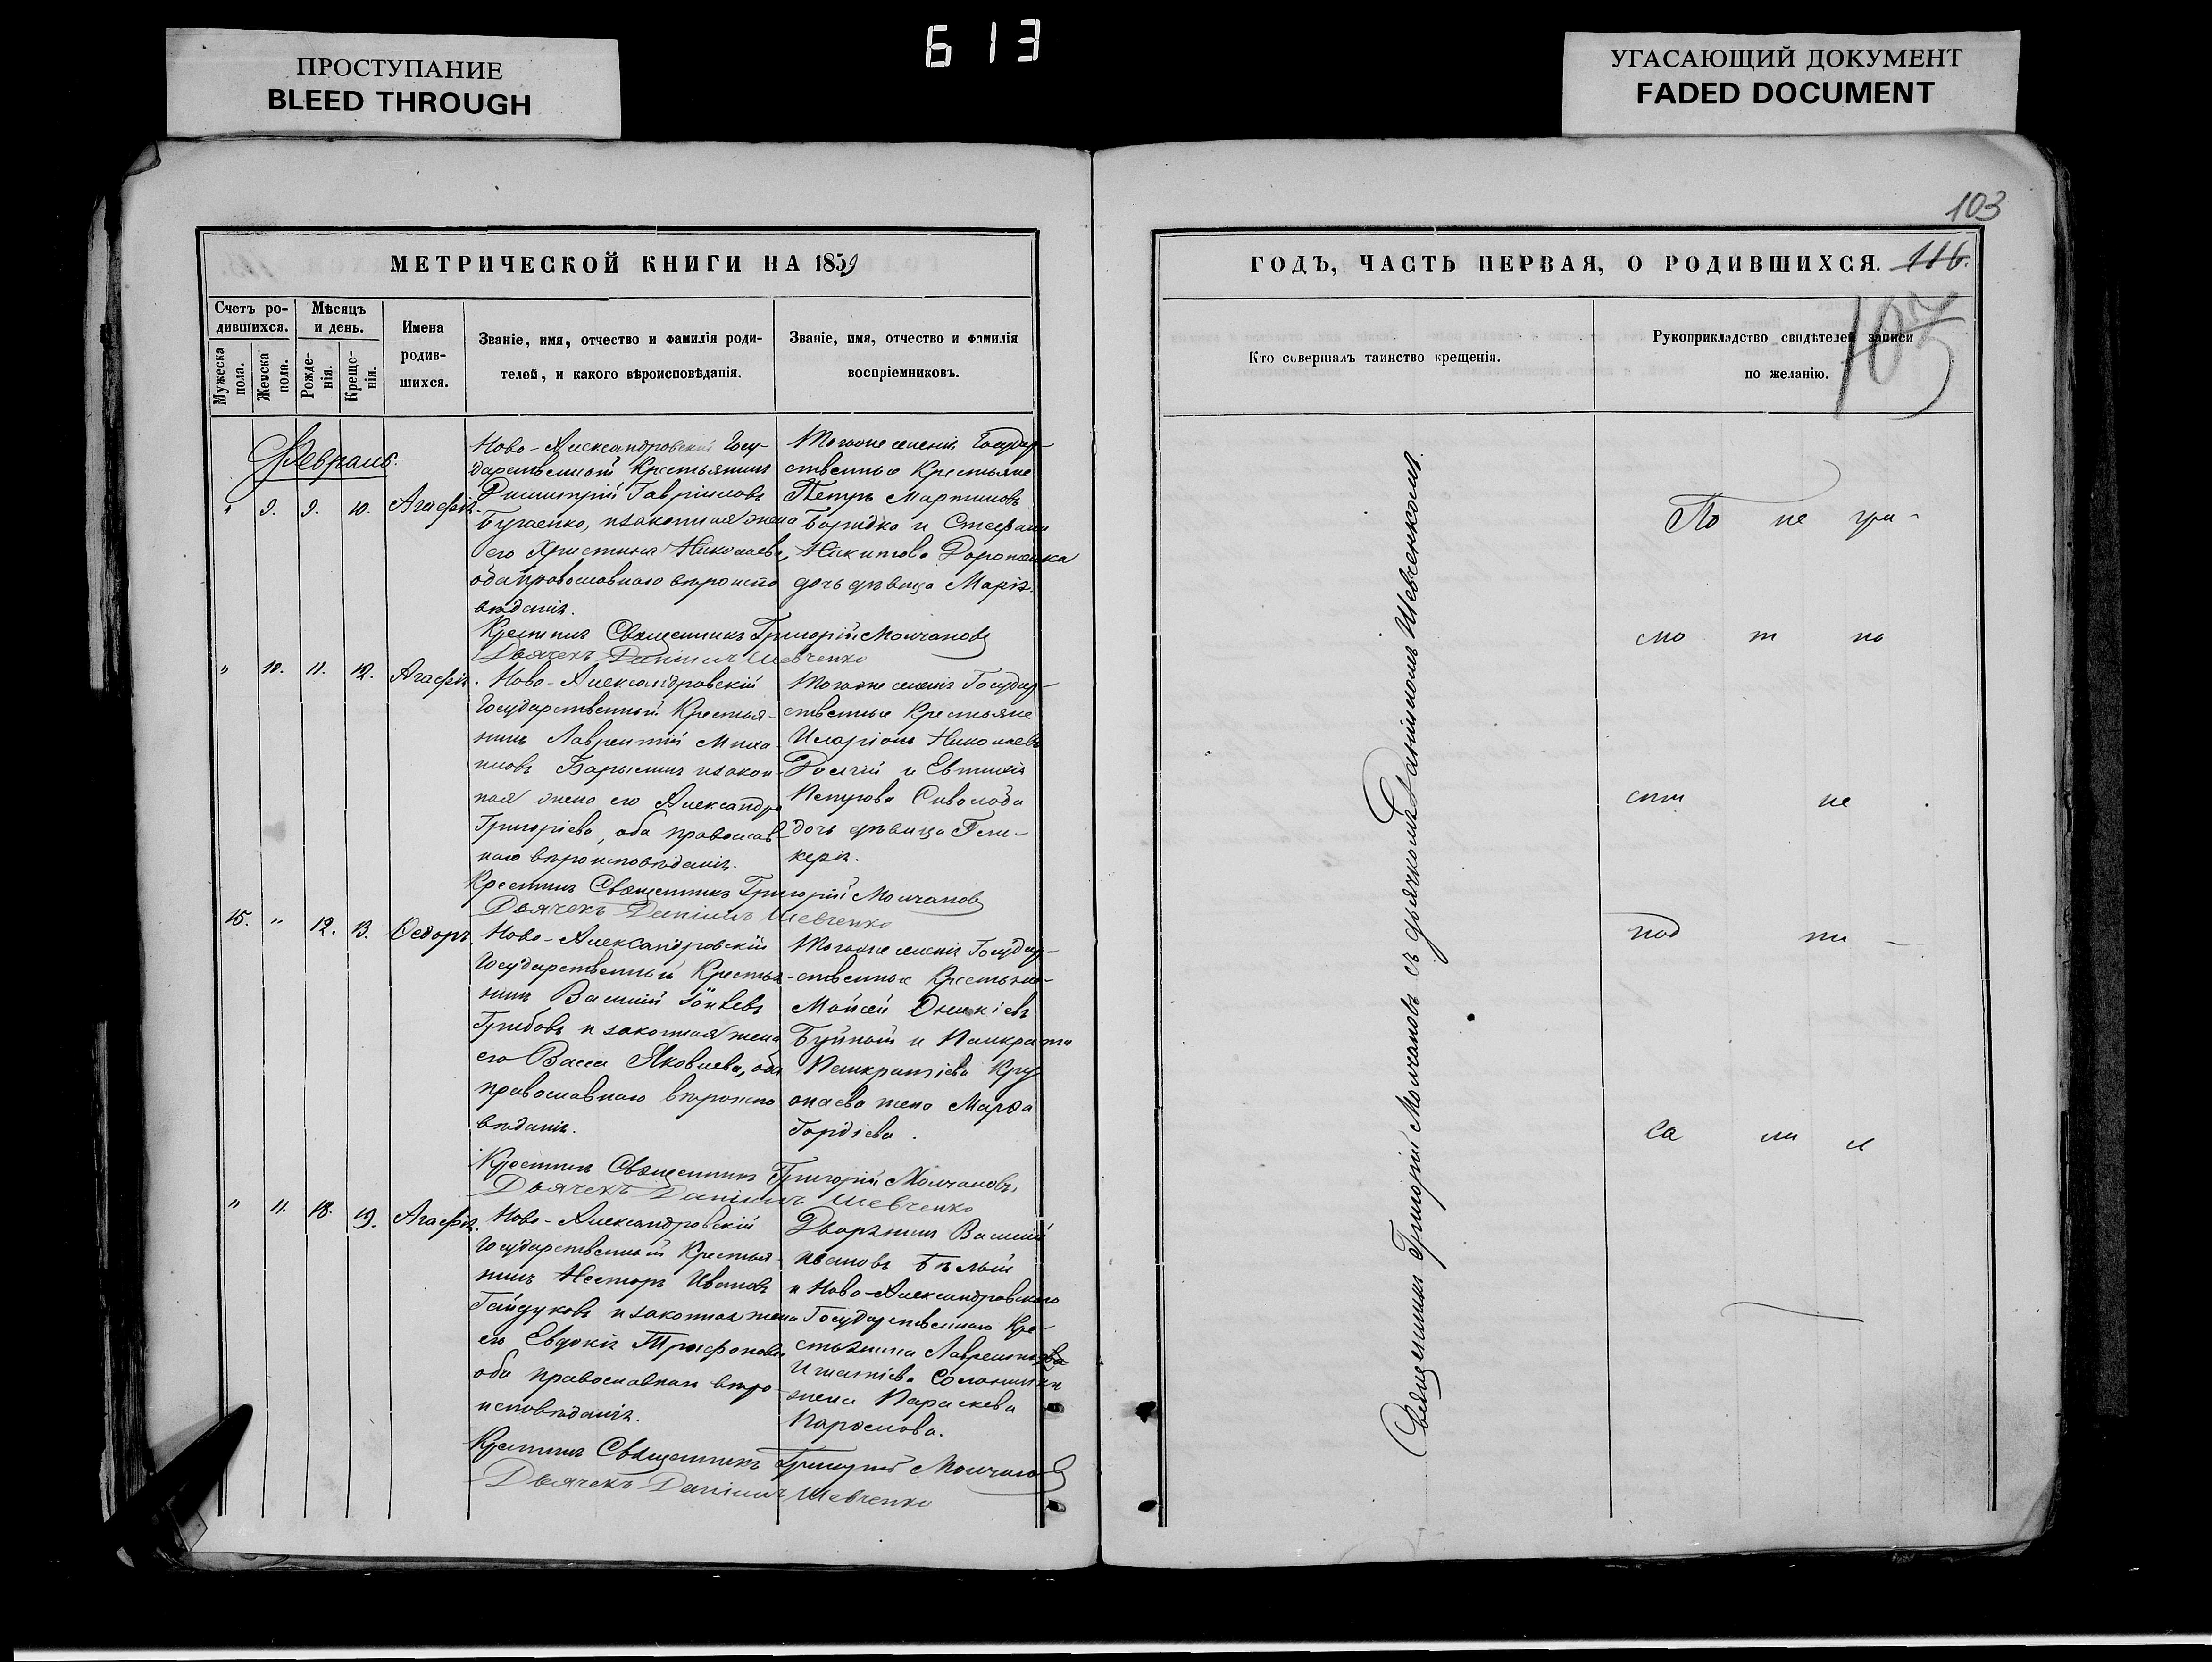 613
ПРОСТУПАНИЕ
BLEED THROUGH
УГАСАЮЩИЙ ДОКУМЕНТ
FADED DOCUMENT
МЕТРИЧЕСКОЙ КНИГИ НА 1859
Счетъ ро-
дившихся.
Мужеска
пола.
Женска
пола.
Мѣсяцъ
и день.
Рожде-
нія.
Креще-
нія.
Имена
родив-
шихся.
Званіе, имя, отчество и фамилія роди-
телей, и какого вѣроисповѣданія.
Званіе, имя, отчество и фамилія
воспріемниковъ.
Февраль.
" 9. 9. 10. Агафія.
Ново-Александровскій Госу-
дарственный Крестьянинъ
Димитрій Гавріиловъ
Бугаенко, и законная жена
его Христина Николаева,
оба православнаго вѣроиспо
вѣданія.
Тогоже селенія Государ-
ственные Крестьяне
Петръ Мартиновъ
и Стефана
Никитова
дочь дѣвица Марія.
Крестилъ Священникъ Григорій Молчановъ
Дьячекъ Даніилъ Шевченко
" 10. 11. 12. Агафія.
Ново-Александровскій
Государственный Крестья-
нинъ Лаврентій Миха-
иловъ и закон-
ная жена его Александра
Григоріева, оба православ-
наго вѣроисповѣданія.
Тогоже селенія Государ-
ственные Крестьяне
Иларіонъ Николаевъ
и Евтихія
Петрова Сиволода
дочь дѣвица Гли-
керія.
Крестилъ Священникъ Григорій Молчановъ
Дьячекъ Даніилъ Шевченко
15. " 12. 13. Ѳедоръ.
Ново-Александровскій
Государственный Крестья-
нинъ Василій
Грибовъ и законная жена
его Васса Яковлева, оба
православнаго вѣроиспо
вѣданія.
Тогоже селенія Государ-
ственные Крестьяне
Мойсей
и Панкрата
Панкратіева
жена Марѳа
Гордіева.
Крестилъ Священникъ Григорій Молчановъ,
Дьячекъ Даніилъ Шевченко
" 11. 18. 19. Агафія.
Ново-Александровскій
Государственный Крестья-
нинъ Несторъ Ивановъ
Гайдуковъ и законная жена
его Евдокія Трифонова
оба православнаго вѣро-
исповѣданія.
Дворянинъ Василій
Ивановъ Бѣлый
и Ново-Александровскаго
Государственнаго Кре-
стьянина Лаврентія
Игнатіева
жена Параскева
Крестилъ Священникъ Григорій Молчановъ
Дьячекъ Даніилъ Шевченко
103
ГОДЪ, ЧАСТЬ ПЕРВАЯ, О РОДИВШИХСЯ. 116.
105
Кто совершалъ таинство крещенія.
Рукоприкладство свидѣтелей записи
по желанію.
Священникъ Григорій Молчановъ съ дьячкомъ Даніиломъ Шевченкомъ.
По не гра-
мо т но
сти не
под пи -
са ли с